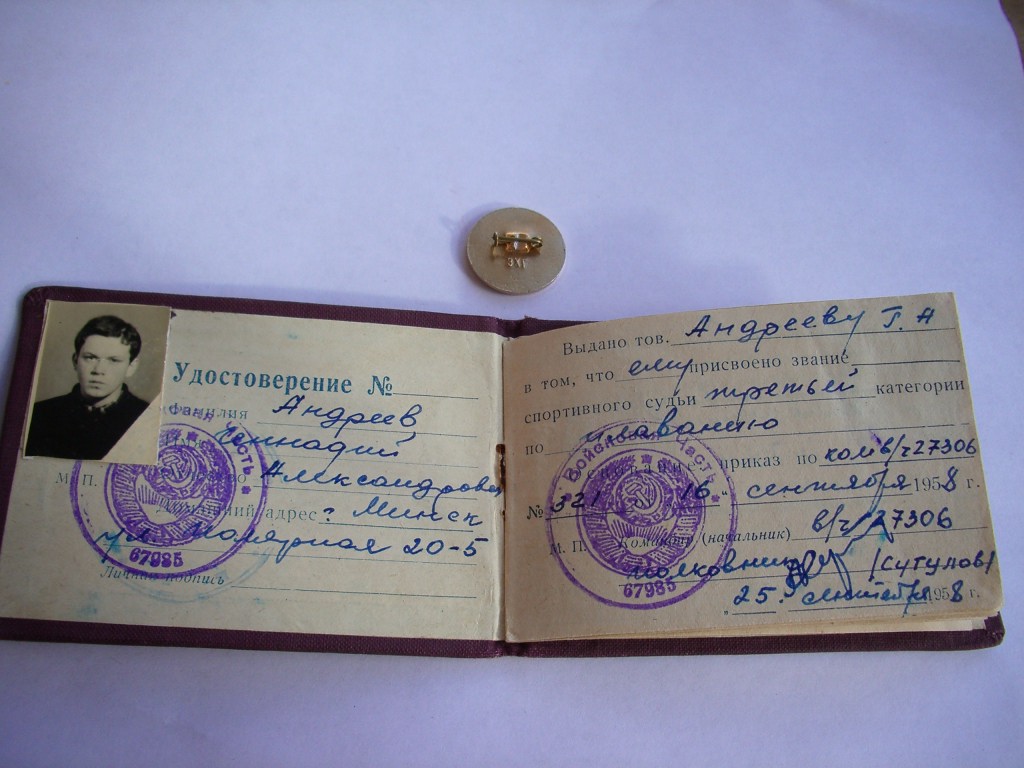 ЗХГ
Удостоверение №
Фамилия Андреев
Геннадий
Александрович
М. П.
Домашний адрес: Минск
ул. Малярная 20-5
Личная подпись
Войсковая часть
67985
Выдано тов. Андрееву Г. А
в том, что ему присвоено звание
спортивного судьи третьей категории
по плаванию
приказ по ком в/ч 27306
№ 321 16 " сентября 1958 г.
М. П. Командир (начальник) в/ч 27306
полковник /Сутулов/
" 25 " сентября 1958 г.
Войсковая часть
67985